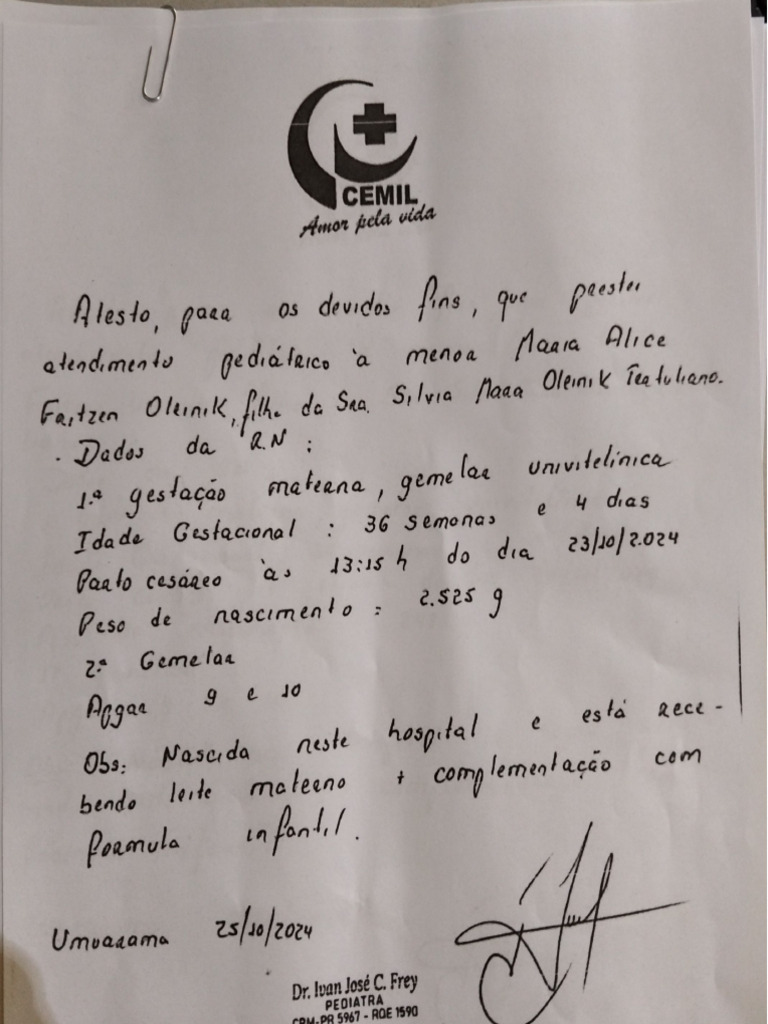 CEMIL
Amor pela vida
Atesto, para os devidos fins, que prestei
atendimento pediátrico à menor Maria Alice
Fritzen Oleinik, filha da Sra. Silvia Mara Oleinik Tertuliano.
. Dados da R.N :
1.ª gestação materna, gemelar univitelínica
Idade Gestacional : 36 semanas e 4 dias
Parto cesáreo às 13:15 h do dia 23/10/2.024
Peso de nascimento : 2.525 g
2.ª Gemelar
Apgar 9 e 10
Obs: Nascida neste hospital e está rece-
bendo leite materno + complementação com
formula infantil.
Umuarama 25/10/2024
Dr. Ivan José C. Frey
PEDIATRA
CRM-PR 5967 - RQE 1590